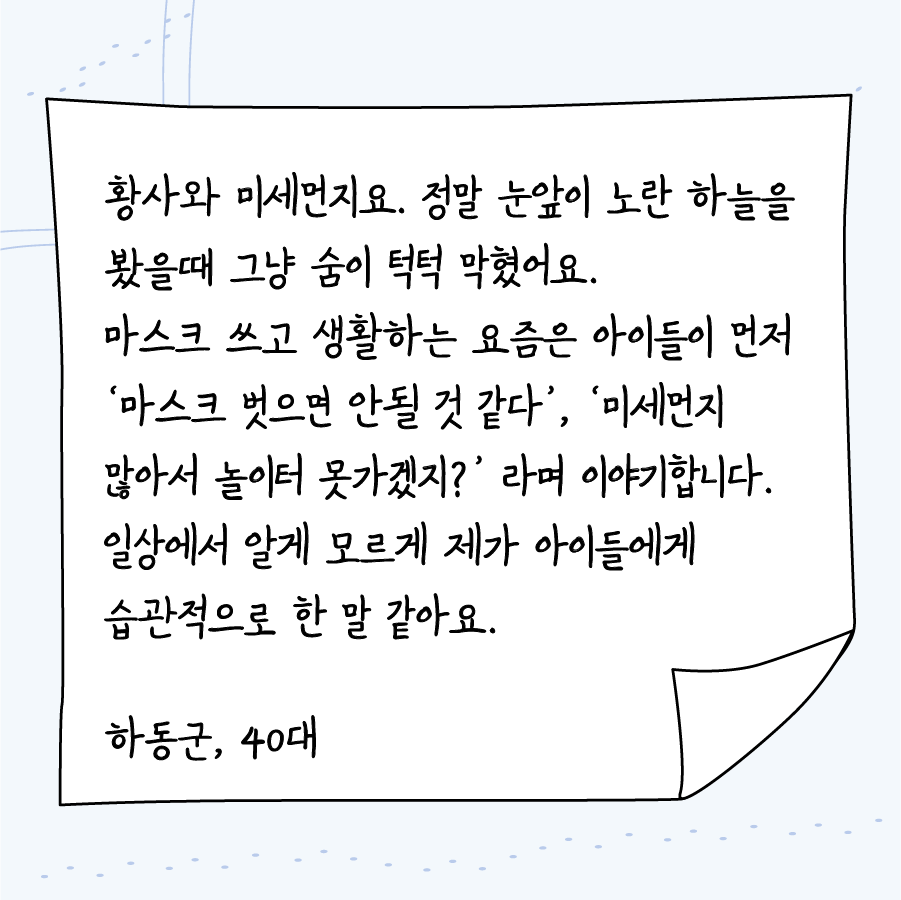 황사와 미세먼지요. 정말 눈앞이 노란 하늘을
봤을때 그냥 숨이 턱턱 막혔어요.
마스크 쓰고 생활하는 요즘은 아이들이 먼저
‘마스크 벗으면 안될 것 같다’, ‘미세먼지
많아서 놀이터 못가겠지?’ 라며 이야기합니다.
일상에서 알게 모르게 제가 아이들에게
습관적으로 한 말 같아요.
하동군, 40대